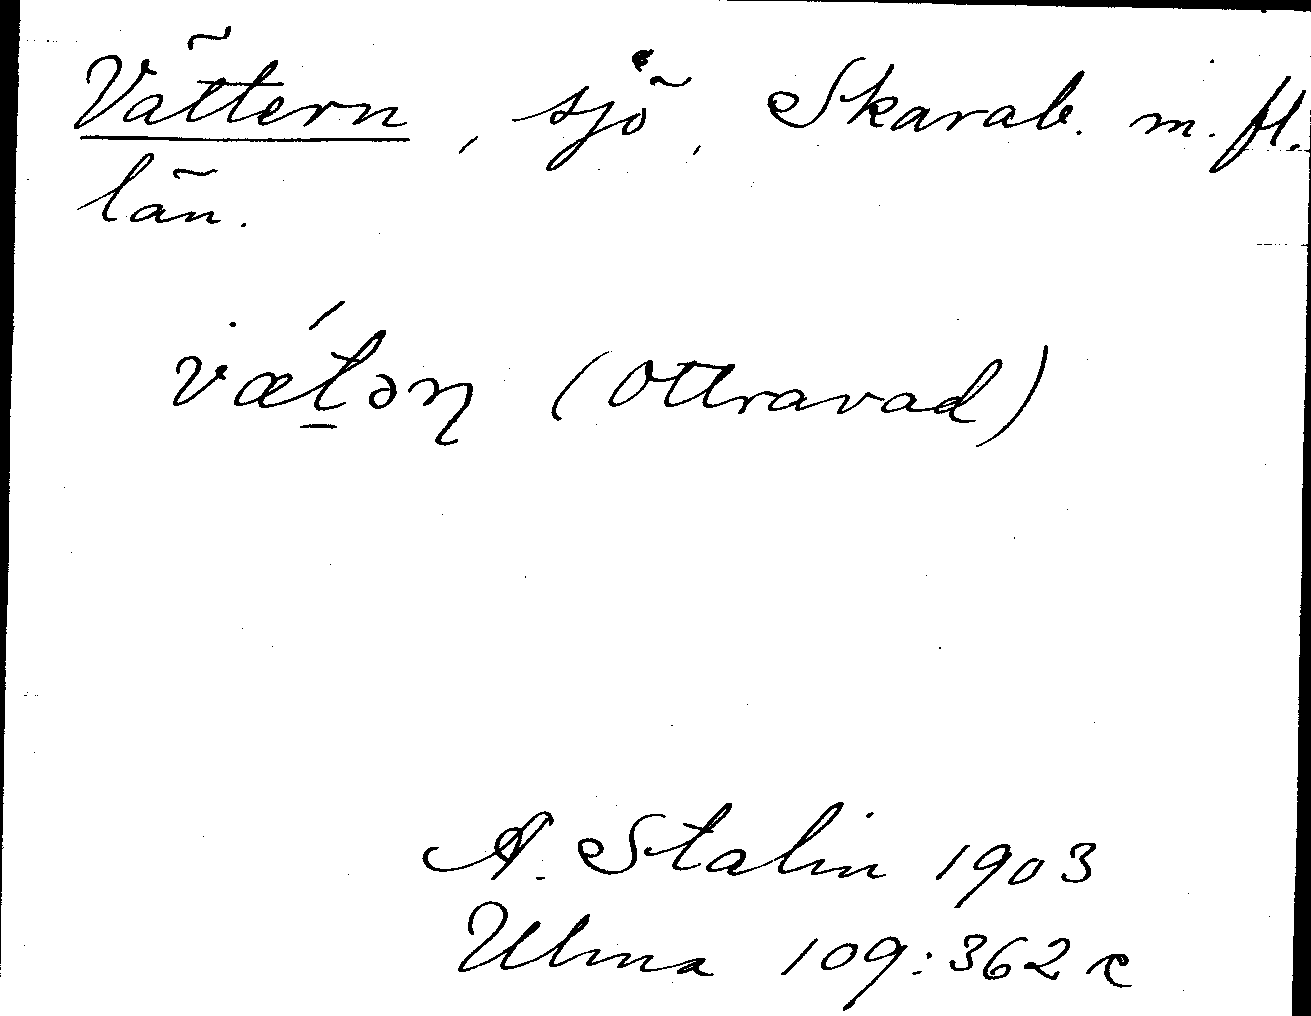 Vättern, sjö, Skarab. m. fl.
län.
væ´t̲əŋ (Ottravad)
A. Stalin 1903
Ulma 109:362 c